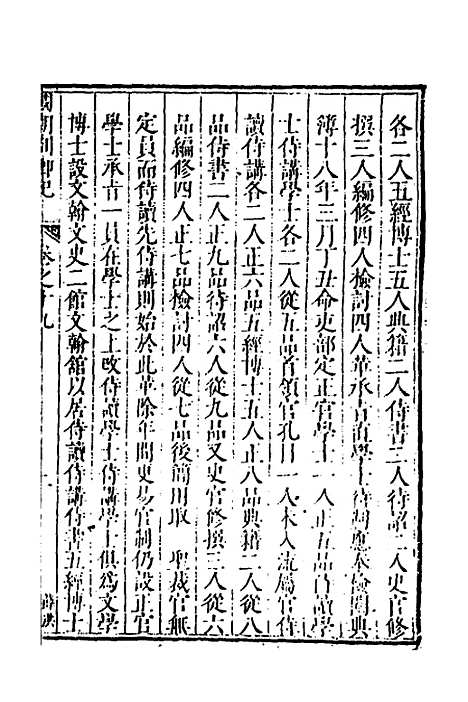 各二人五經博士五人典籍二人侍書二人待詔二人史官修
撰三人編修四人檢討四人革承旨直學士待制應奉檢閱典
簿十八年三月丁丑命吏部定正官學士一人正五品侍讀學
士侍講學士各二人從五品首領官孔目一人未入流屬官侍
讀侍講各二人正六品五經博士五人正八品典籍二人從八
品侍書二人正九品待詔六人從九品又史官修撰三人從六
品編修四人正七品檢討四人從七品後簡用取 聖裁官無
定員而侍讀先侍講則始於此革除年間更易官制仍設正官
學士承旨一員在學士之上改侍讀學士侍講學士俱為文學
博士設文翰文史二館文翰館以居侍讀侍講侍書五經博士
國朝列卿紀 卷之十九 一